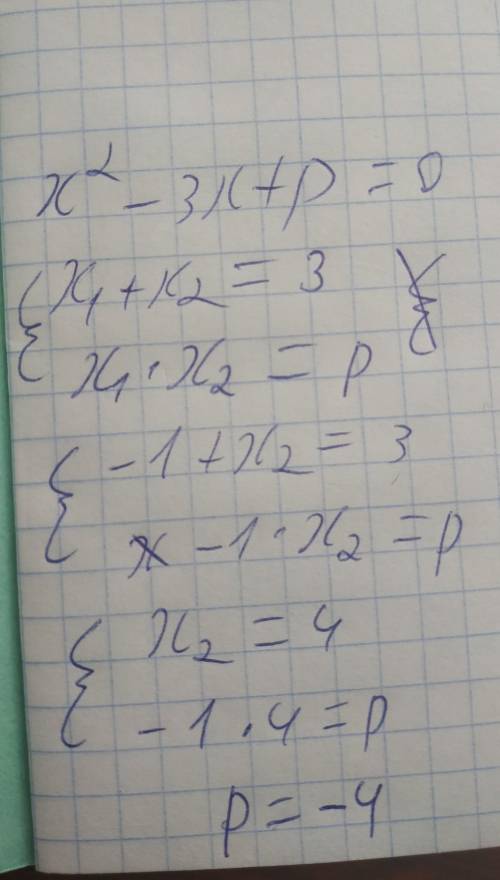 x² - 3x + p = 0
{ x₁ + x₂ = 3
x₁ · x₂ = p
{ -1 + x₂ = 3
-1 · x₂ = p
{ x₂ = 4
-1 · 4 = p
p = -4